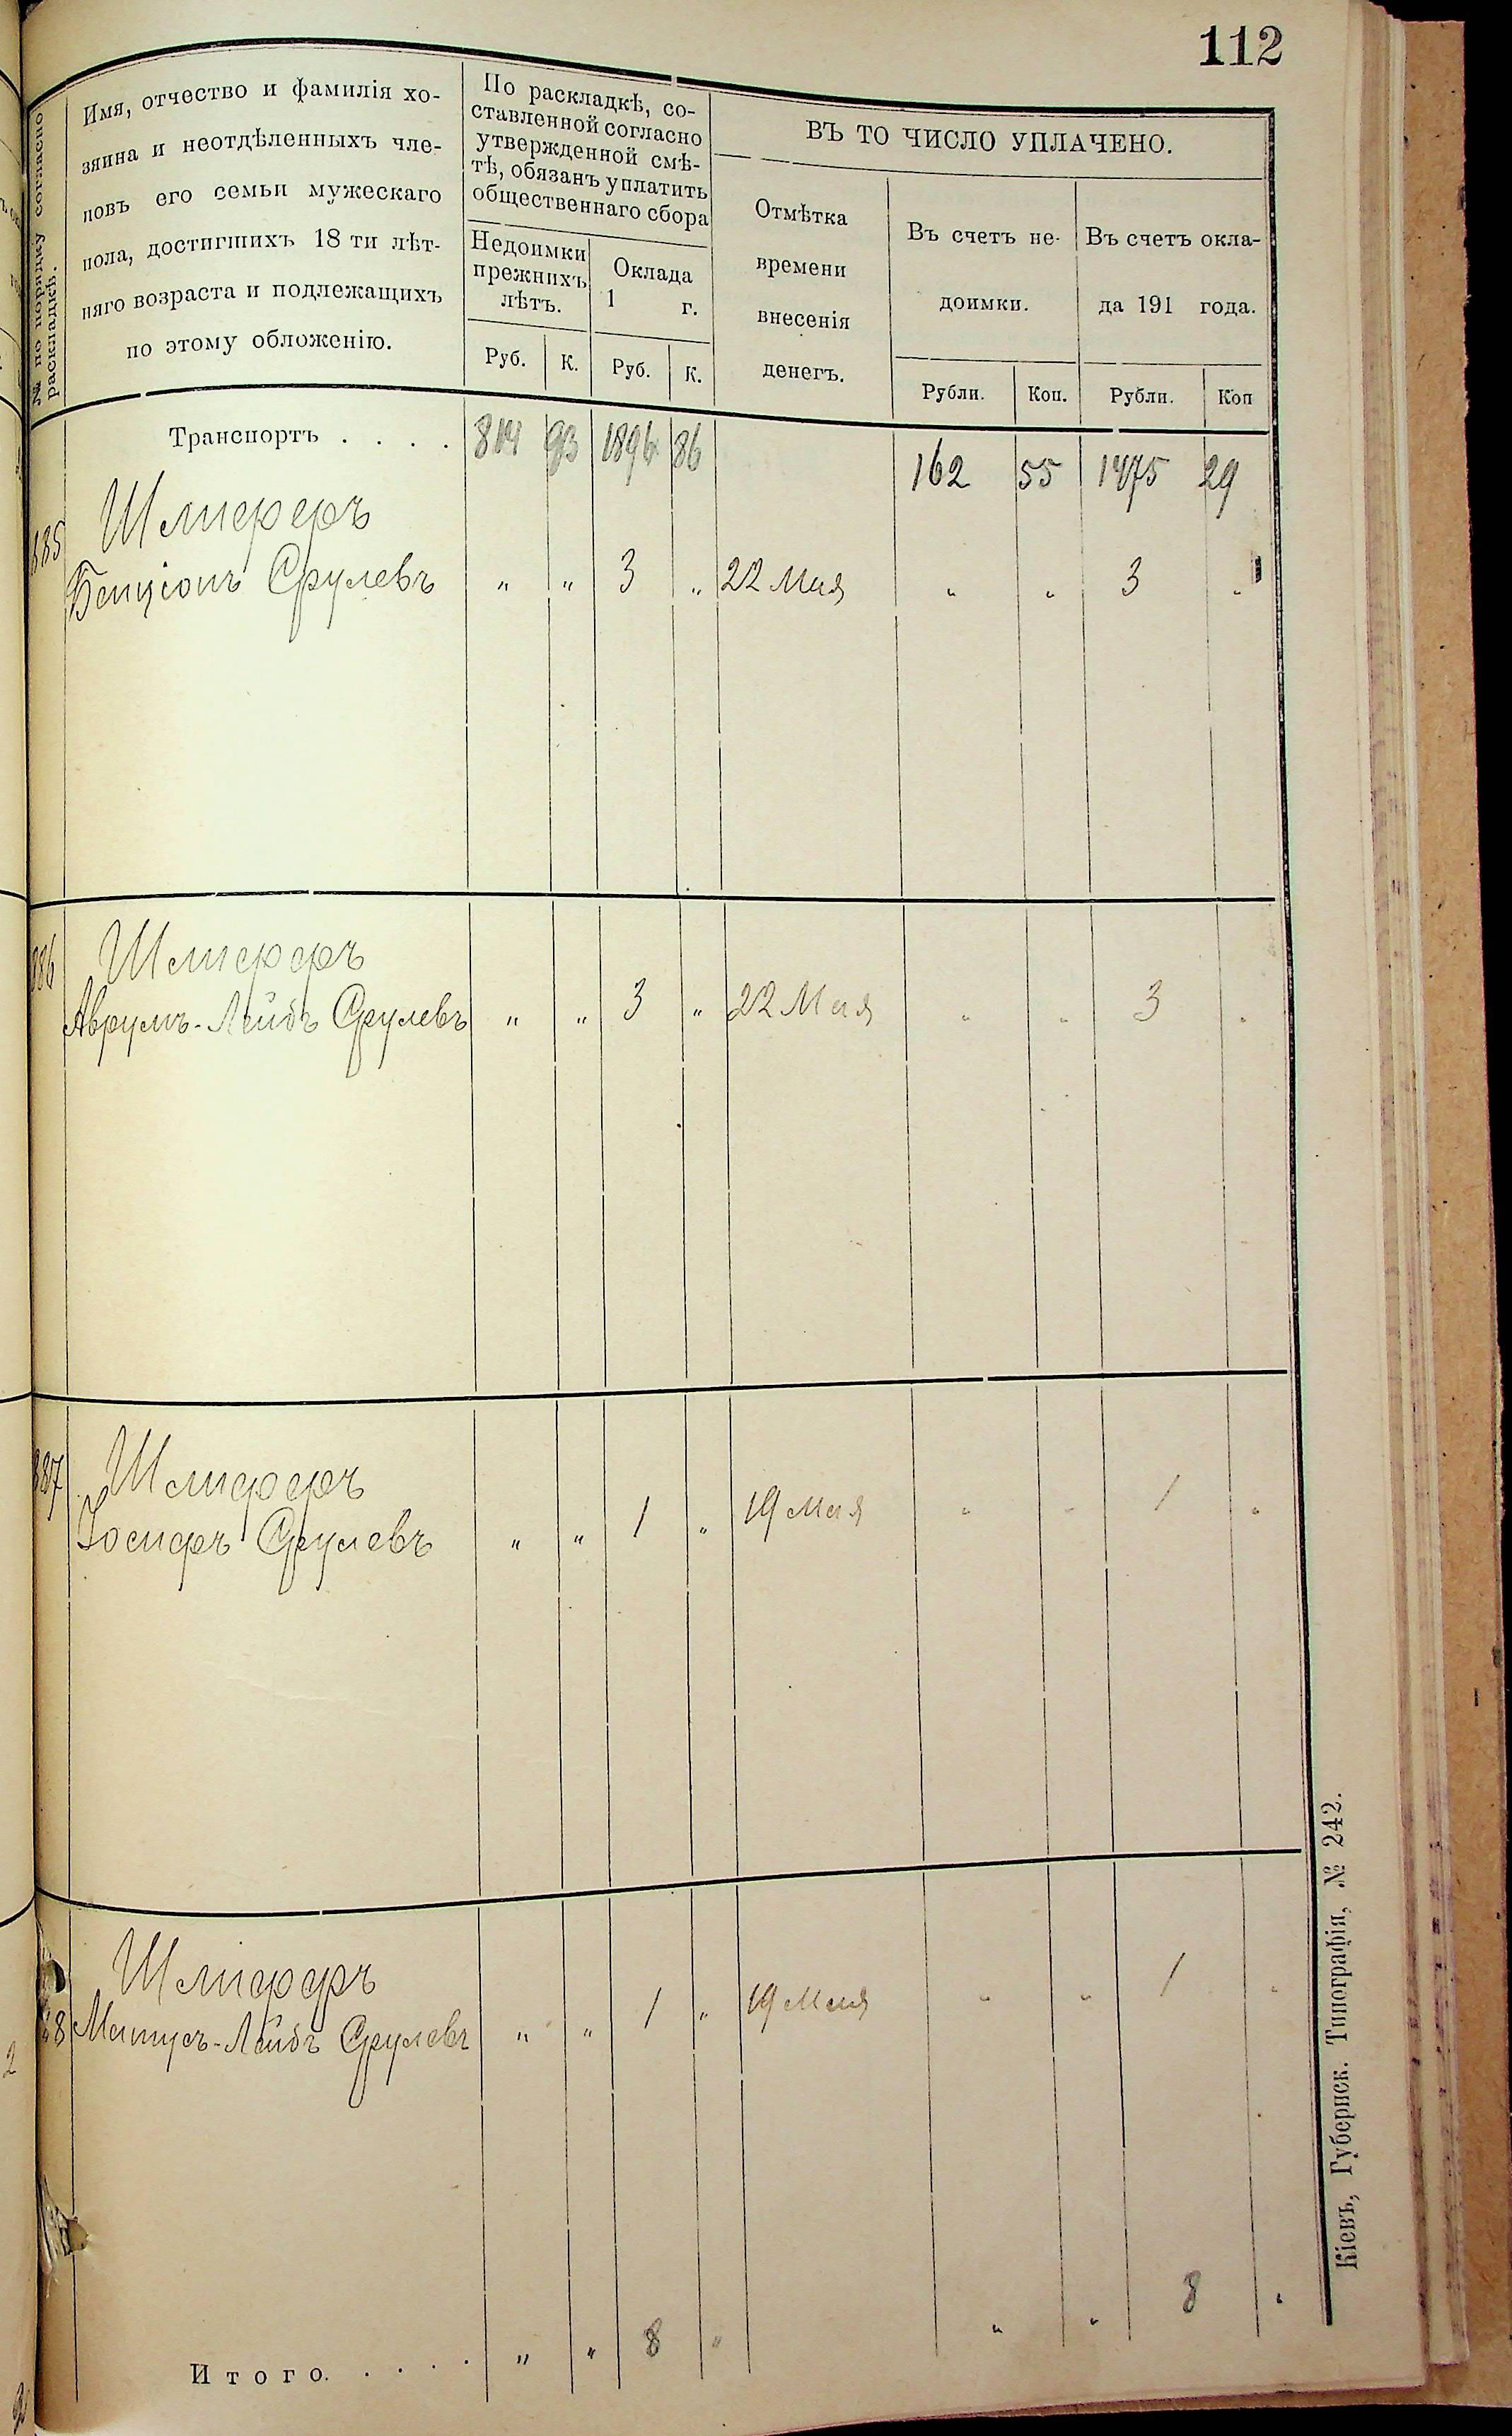 112
№ по порядку согласно
раскладкѣ.
Имя, отчество и фамилія хо-
зяина и неотдѣленныхъ чле-
новъ его семьи мужескаго
пола, достигшихъ 18 ти лѣт-
няго возраста и подлежащихъ
по этому обложенію.
По раскладкѣ, со-
ставленной согласно
утвержденной смѣ-
тѣ, обязанъ уплатить
общественнаго сбора
Недоимки
прежнихъ
лѣтъ.
Оклада
1 г.
Руб. К. Руб. К.
ВЪ ТО ЧИСЛО УПЛАЧЕНО.
Отмѣтка
времени
внесенія
денегъ.
Въ счетъ не-
доимки.
Въ счетъ окла-
да 191 года.
Рубли. Коп. Рубли. Коп
Транспортъ . . . . 814 93 1896 86 162 55 1475 29
885 Шлиферъ
Бенціонъ Срулевъ " " 3 " 22 Мая " " 3 "
886 Шлиферъ
Аврумъ-Лейбъ Срулевъ " " 3 " 22 Мая " " 3 "
887 Шлиферъ
Іосифъ Срулевъ " " 1 " 19 Мая " " 1 "
Шлиферъ
88 Матусъ-Лейбъ Срулевъ " " 1 " 19 Мая " " 1 "
Итого. . . . . " " 8 " " " 8 "
Кіевъ, Губернск. Типографія, № 242.